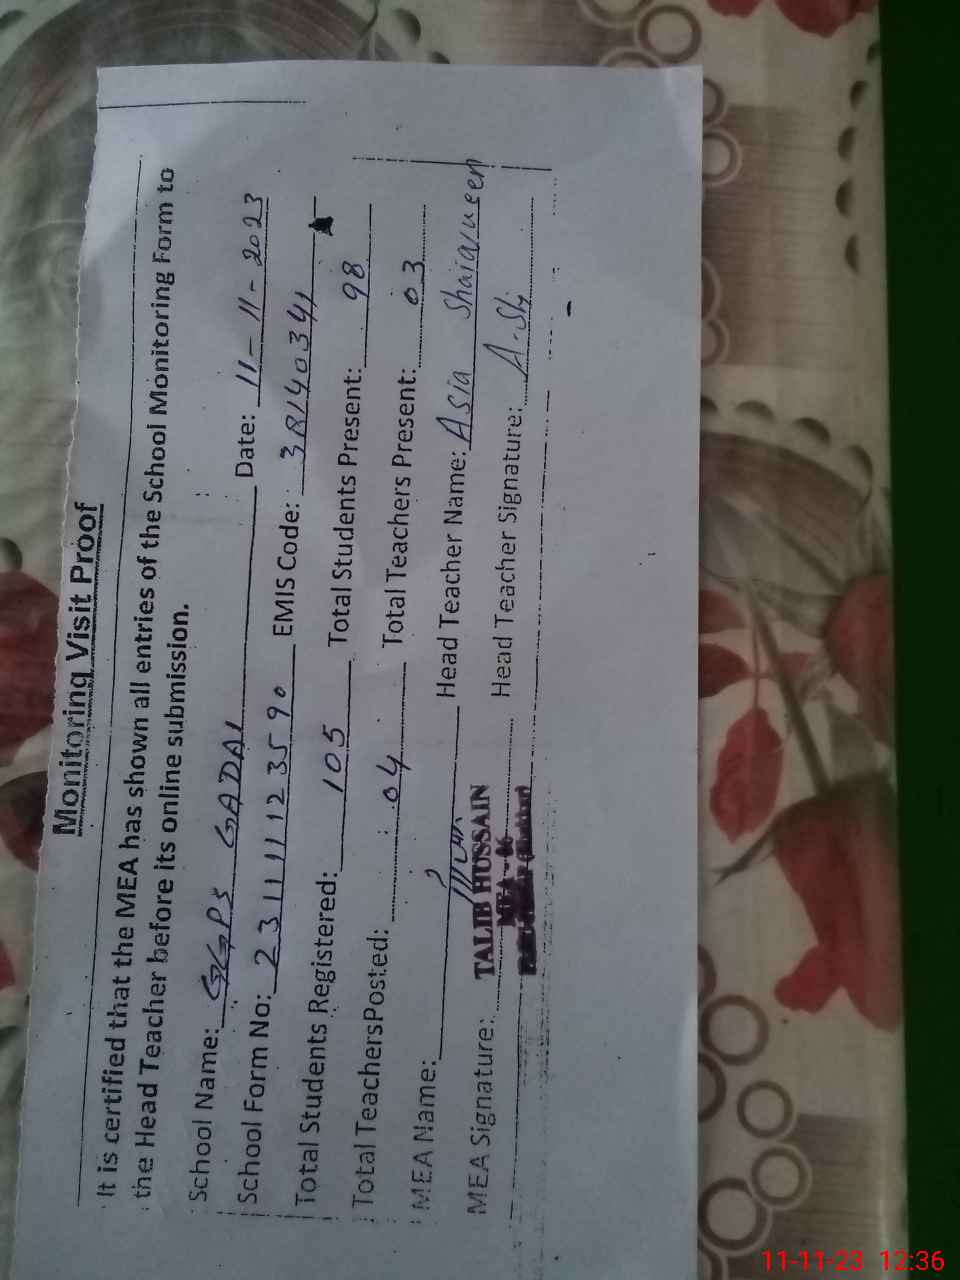 Monitoring Visit Proof
It is certified that the MEA has shown all entries of the School Monitoring Form to
the Head Teacher before its online submission.
School Name: GGPS GADAI Date: 11-11-2023
School Form No: 23111123590 EMIS Code: 38140341
Total Students Registered: 105 Total Students Present: 98
Total TeachersPosted: 04 Total Teachers Present: 03
MEA Name: Head Teacher Name: Asia
MEA Signature: TALIB HUSSAIN Head Teacher Signature: A.Sh
MEA - 06
11-11-23 12:36